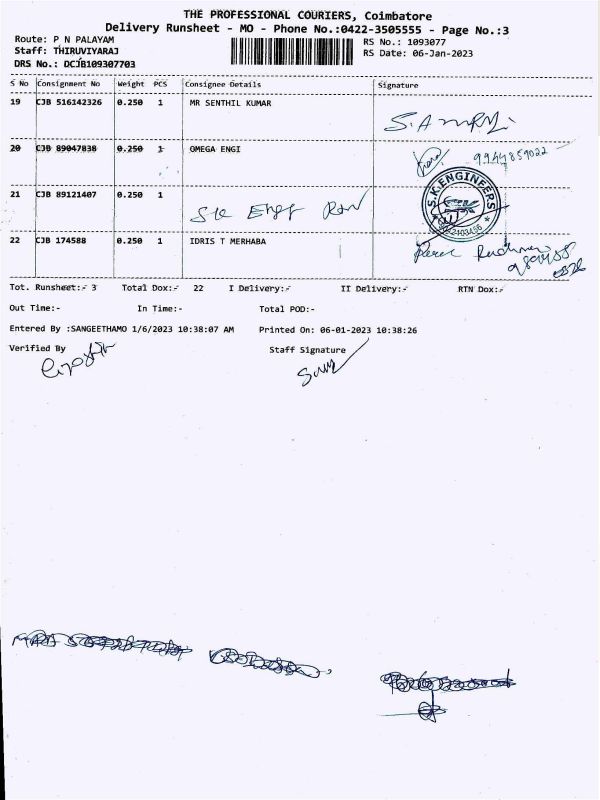 THE PROFESSIONAL COURIERS, Coimbatore
Delivery Runsheet - MO - Phone No.:0422-3505555 - Page No.:3
Route: P N PALAYAM
RS No.: 1093077
Staff: THIRUVIYARAJ
RS Date: 06-Jan-2023
DRS No.: DCJB109307703
S No Consignment No Weight PCS Consignee Details Signature
19 CJB 516142326 0.250 1 MR SENTHIL KUMAR
20 CJB 89047838 0.250 1 OMEGA ENGI
9944859022
21 CJB 89121407 0.250 1
S.K.ENGINEERS
22 CJB 174588 0.250 1 IDRIS T MERHABA
Tot. Runsheet:- 3 Total Dox:- 22 I Delivery:- II Delivery:- RTN Dox:-
Out Time:- In Time:- Total POD:-
Entered By :SANGEETHAMO 1/6/2023 10:38:07 AM Printed On: 06-01-2023 10:38:26
Verified By Staff Signature